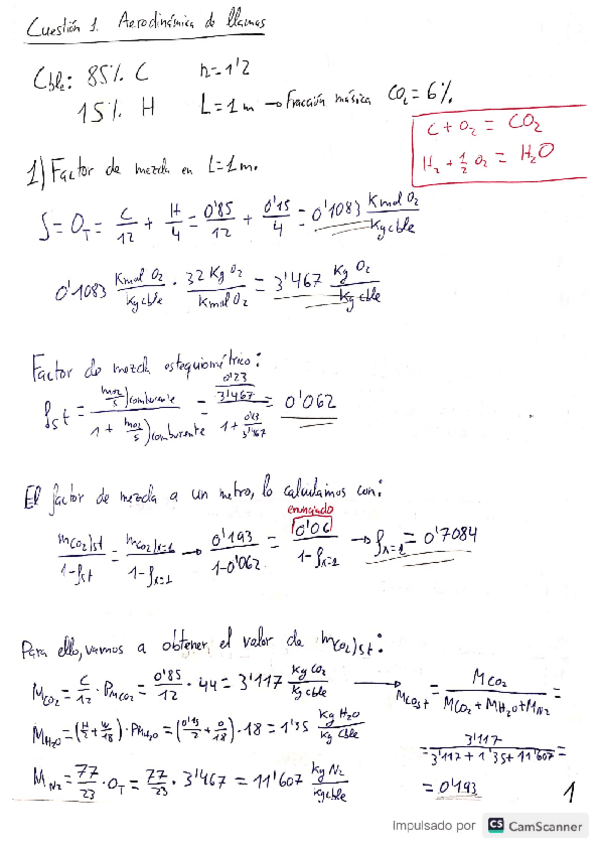 Cuestión 1. Aerodinámica de llamas
Cble: 85% C n=1'2
15% H L=1m → Fracción másica CO2=6%
C + O2 = CO2
H2 + 1/2 O2 = H2O
1) Factor de mezcla en L=1m.
S = OT = C/12 + H/4 = 0'85/12 + 0'15/4 = 0'1083 Kmol O2/Kg cble
0'1083 Kmol O2/Kg cble · 32 Kg O2/Kmol O2 = 3'467 Kg O2/Kg cble
Factor de mezcla estequiométrico:
fst = (mO2/s)comburente / (1 + mO2/s)comburente = (0'23/3'467) / (1 + 0'23/3'467) = 0'062
El factor de mezcla a un metro, lo calculamos con:
enunciado
mCO2)st / (1-fst) = mCO2)x=1 / (1-fx=1) → 0'193 / (1-0'062) = 0'06 / (1-fx=1) → fx=1 = 0'7084
Para ello, vamos a obtener el valor de mCO2)st:
MCO2 = C/12 · PmCO2 = 0'85/12 · 44 = 3'117 Kg CO2/Kg cble → MCO2st = MCO2 / (MCO2 + MH2O + MN2) =
MH2O = (H/2 + W/18) · PmH2O = (0'15/2 + 0/18) · 18 = 1'35 Kg H2O/Kg cble = 3'117 / (3'117 + 1'35 + 11'607) =
MN2 = 77/23 · OT = 77/23 · 3'467 = 11'607 Kg N2/Kg cble = 0'193
1
Impulsado por CS CamScanner